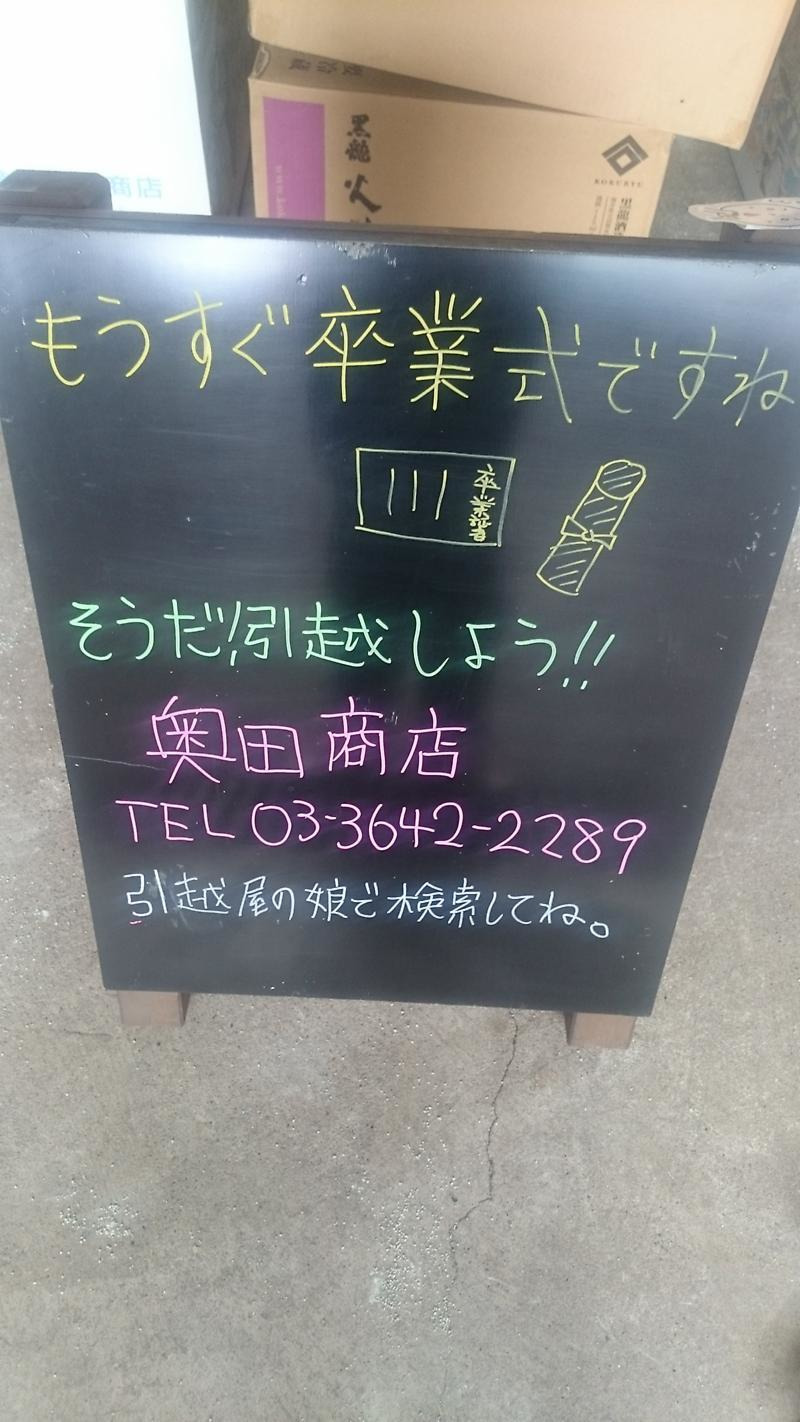 商店
黒龍
KOKURYU
もうすぐ卒業式ですね
卒業証書
そうだ!引越しよう!!
奥田商店
TEL 03-3642-2289
引越屋の娘で検索してね。